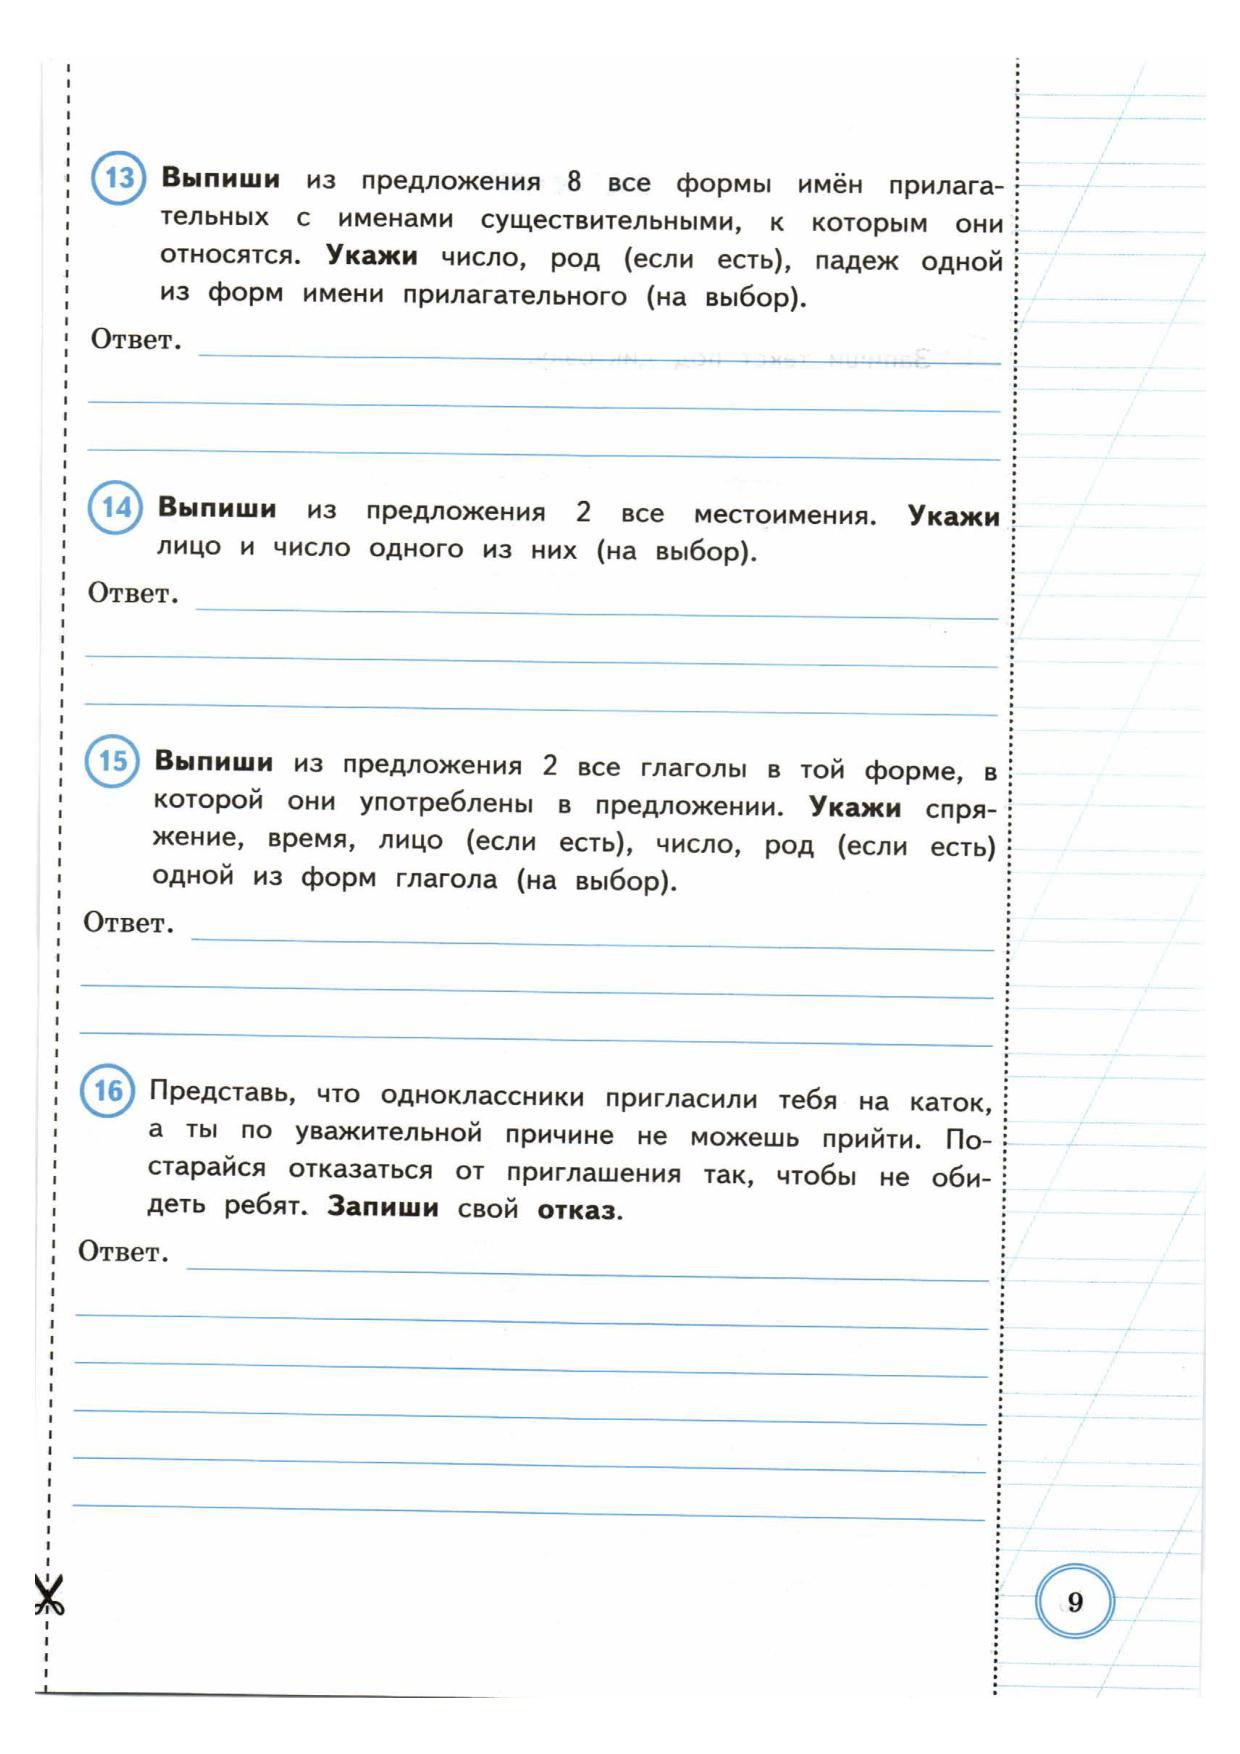 13 Выпиши из предложения 8 все формы имён прилага-
тельных с именами существительными, к которым они
относятся. Укажи число, род (если есть), падеж одной
из форм имени прилагательного (на выбор).
Ответ.
14 Выпиши из предложения 2 все местоимения. Укажи
лицо и число одного из них (на выбор).
Ответ.
15 Выпиши из предложения 2 все глаголы в той форме, в
которой они употреблены в предложении. Укажи спря-
жение, время, лицо (если есть), число, род (если есть)
одной из форм глагола (на выбор).
Ответ.
16 Представь, что одноклассники пригласили тебя на каток,
а ты по уважительной причине не можешь прийти. По-
старайся отказаться от приглашения так, чтобы не оби-
деть ребят. Запиши свой отказ.
Ответ.
9